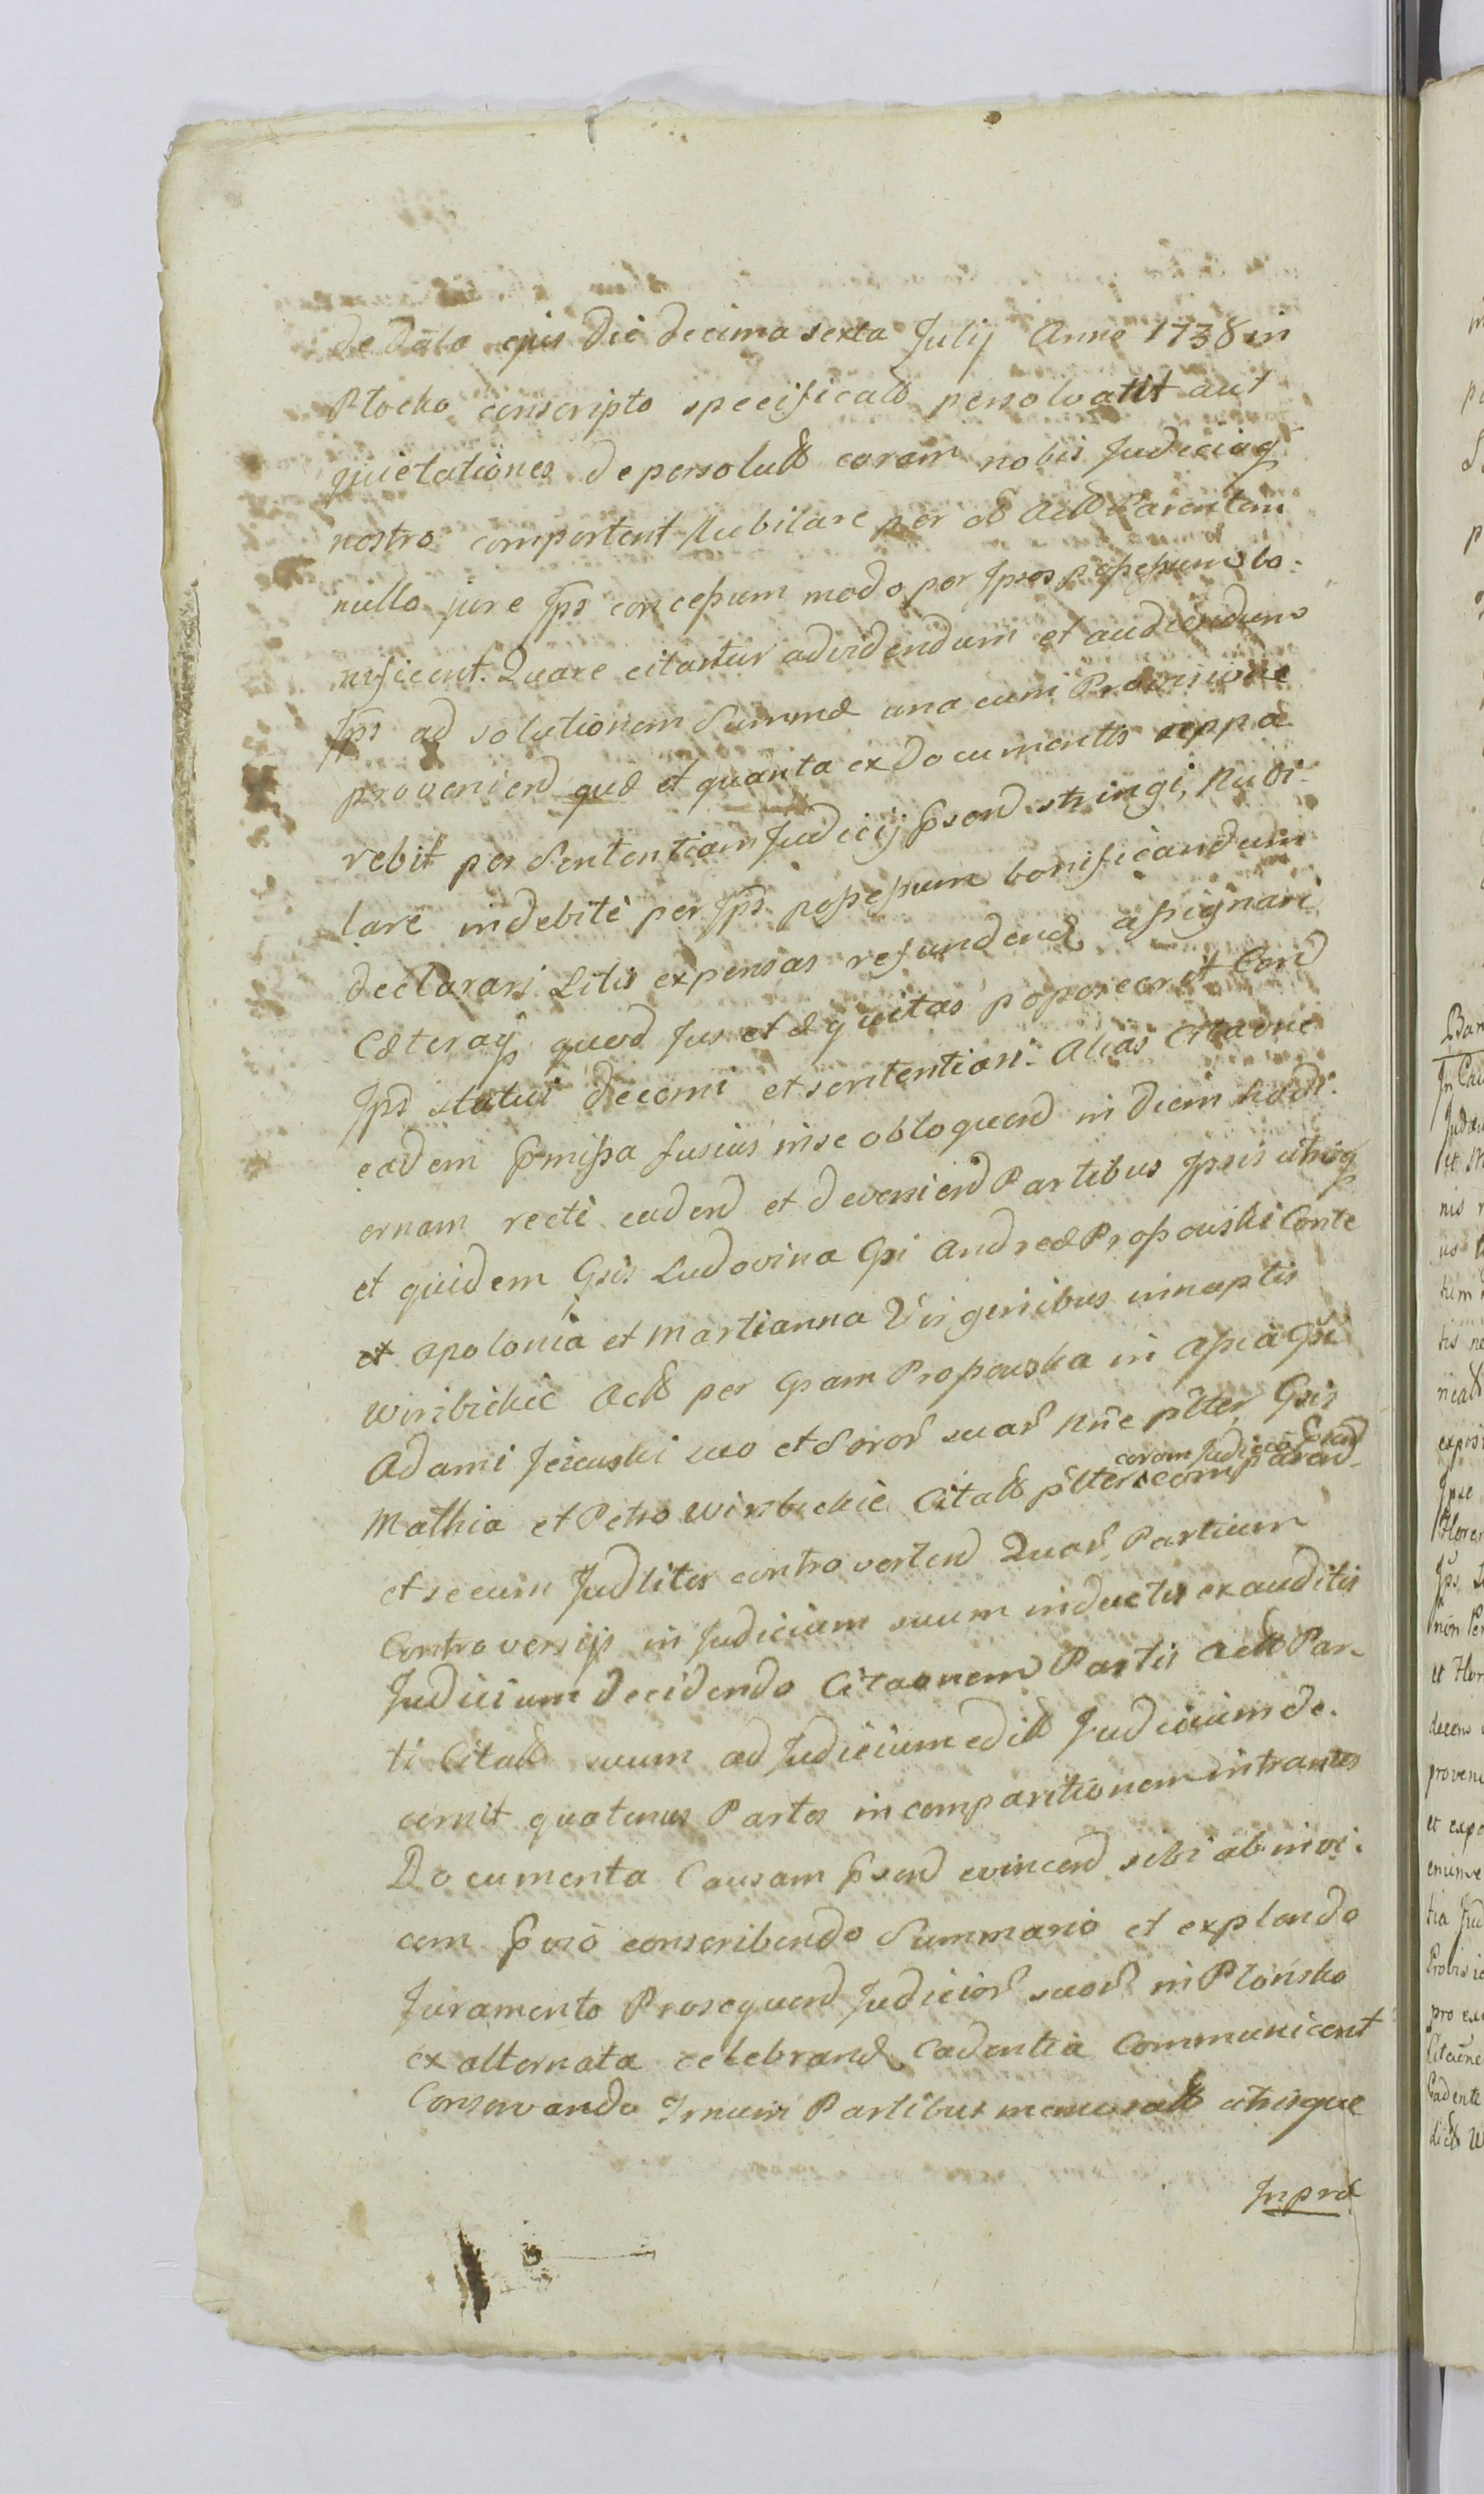 de Data ejus Die decima sexta Julij Anno 1738 in
Plocko conscripto specificatt persolvant aut
quietationes de persolutt coram nobis Judicioq
nostro comportent Nubilare per Actt Parentem
nullo jure Jps concessum modo per Jpsos possessum bo-
nificent. Quare citantur ad videndum et audiendum
Jps ad solutionem Summæ una cum Provisione
proveniend quæ et quanta ex Documentis appa
rebit per Sententiam Judicij Psend stringi, Nubi-
lare indebitè per Jps possessum bonificandum
declarari Litis expensas refundend assignari
Cæteraq quod Jus et æquitas poposcerit Cond
Jps statui decerni et sententiari. Alias Citaone
eadem Pmissa fusius in se obloquend in diem hodi-
ernam rectè cadend et deveniend Partibus Jpsis utrisq
et quidem Gsis Ludovina Gsi Andreæ Prossowski Conte
et Apolonia et Martianna Virginibus innuptis
Wirzbickie Actt per Gsam Prossowska in Assia Gsi
Adami Jeżewski suo et Soror suar nñe plter Gsis
Mathia et Petro Wirzbickie Citatt plter coram Judicio Psend comparend
et secum Judliter controvertend Quar Partium
Controversijs in Judicium suum inductis exauditis
Judicium decidendo Citaonem Partis Actt Par-
ti Citatt suum ad Judicium editt Judicium de-
cernit quatenus Partes in comparitionem intrantes
Documenta Causam Psend evincend sibi ab invi-
cem Pvio conscribendo Summario et explendo
Juramento Prosequend Judicior suor in Płońsko
ex alternata celebrand Cadentia Communicent
Conservando Trnum Partibus memoratt utrisque
Jnpræ